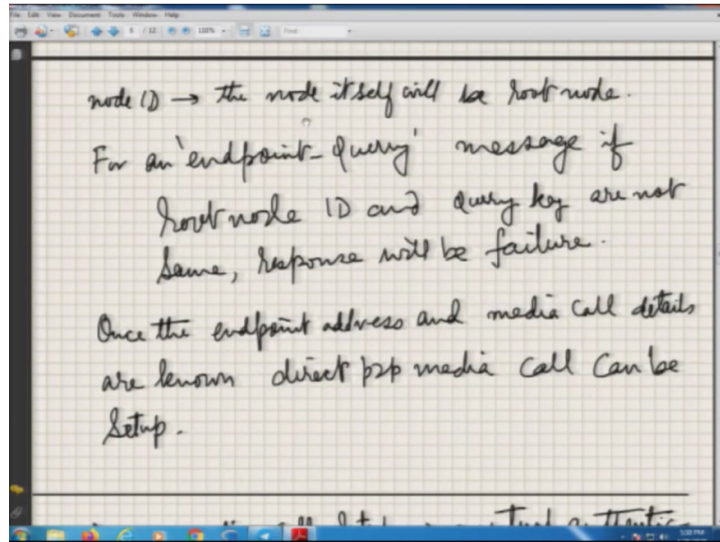 File Edit View Document Tools Window Help
/ 12
Find
node ID → the node itself will be root node.
For an 'endpoint-query' message if
root node ID and query key are not
same, response will be failure.
Once the endpoint address and media call details
are known direct p2p media call can be
setup.